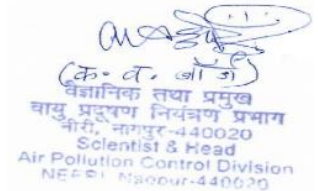 (क. व. जॉर्ज)
वैज्ञानिक तथा प्रमुख
वायु प्रदूषण नियंत्रण प्रभाग
नीरी, नागपुर-440020
Scientist & Head
Air Pollution Control Division
NEERI, Nagpur-440020